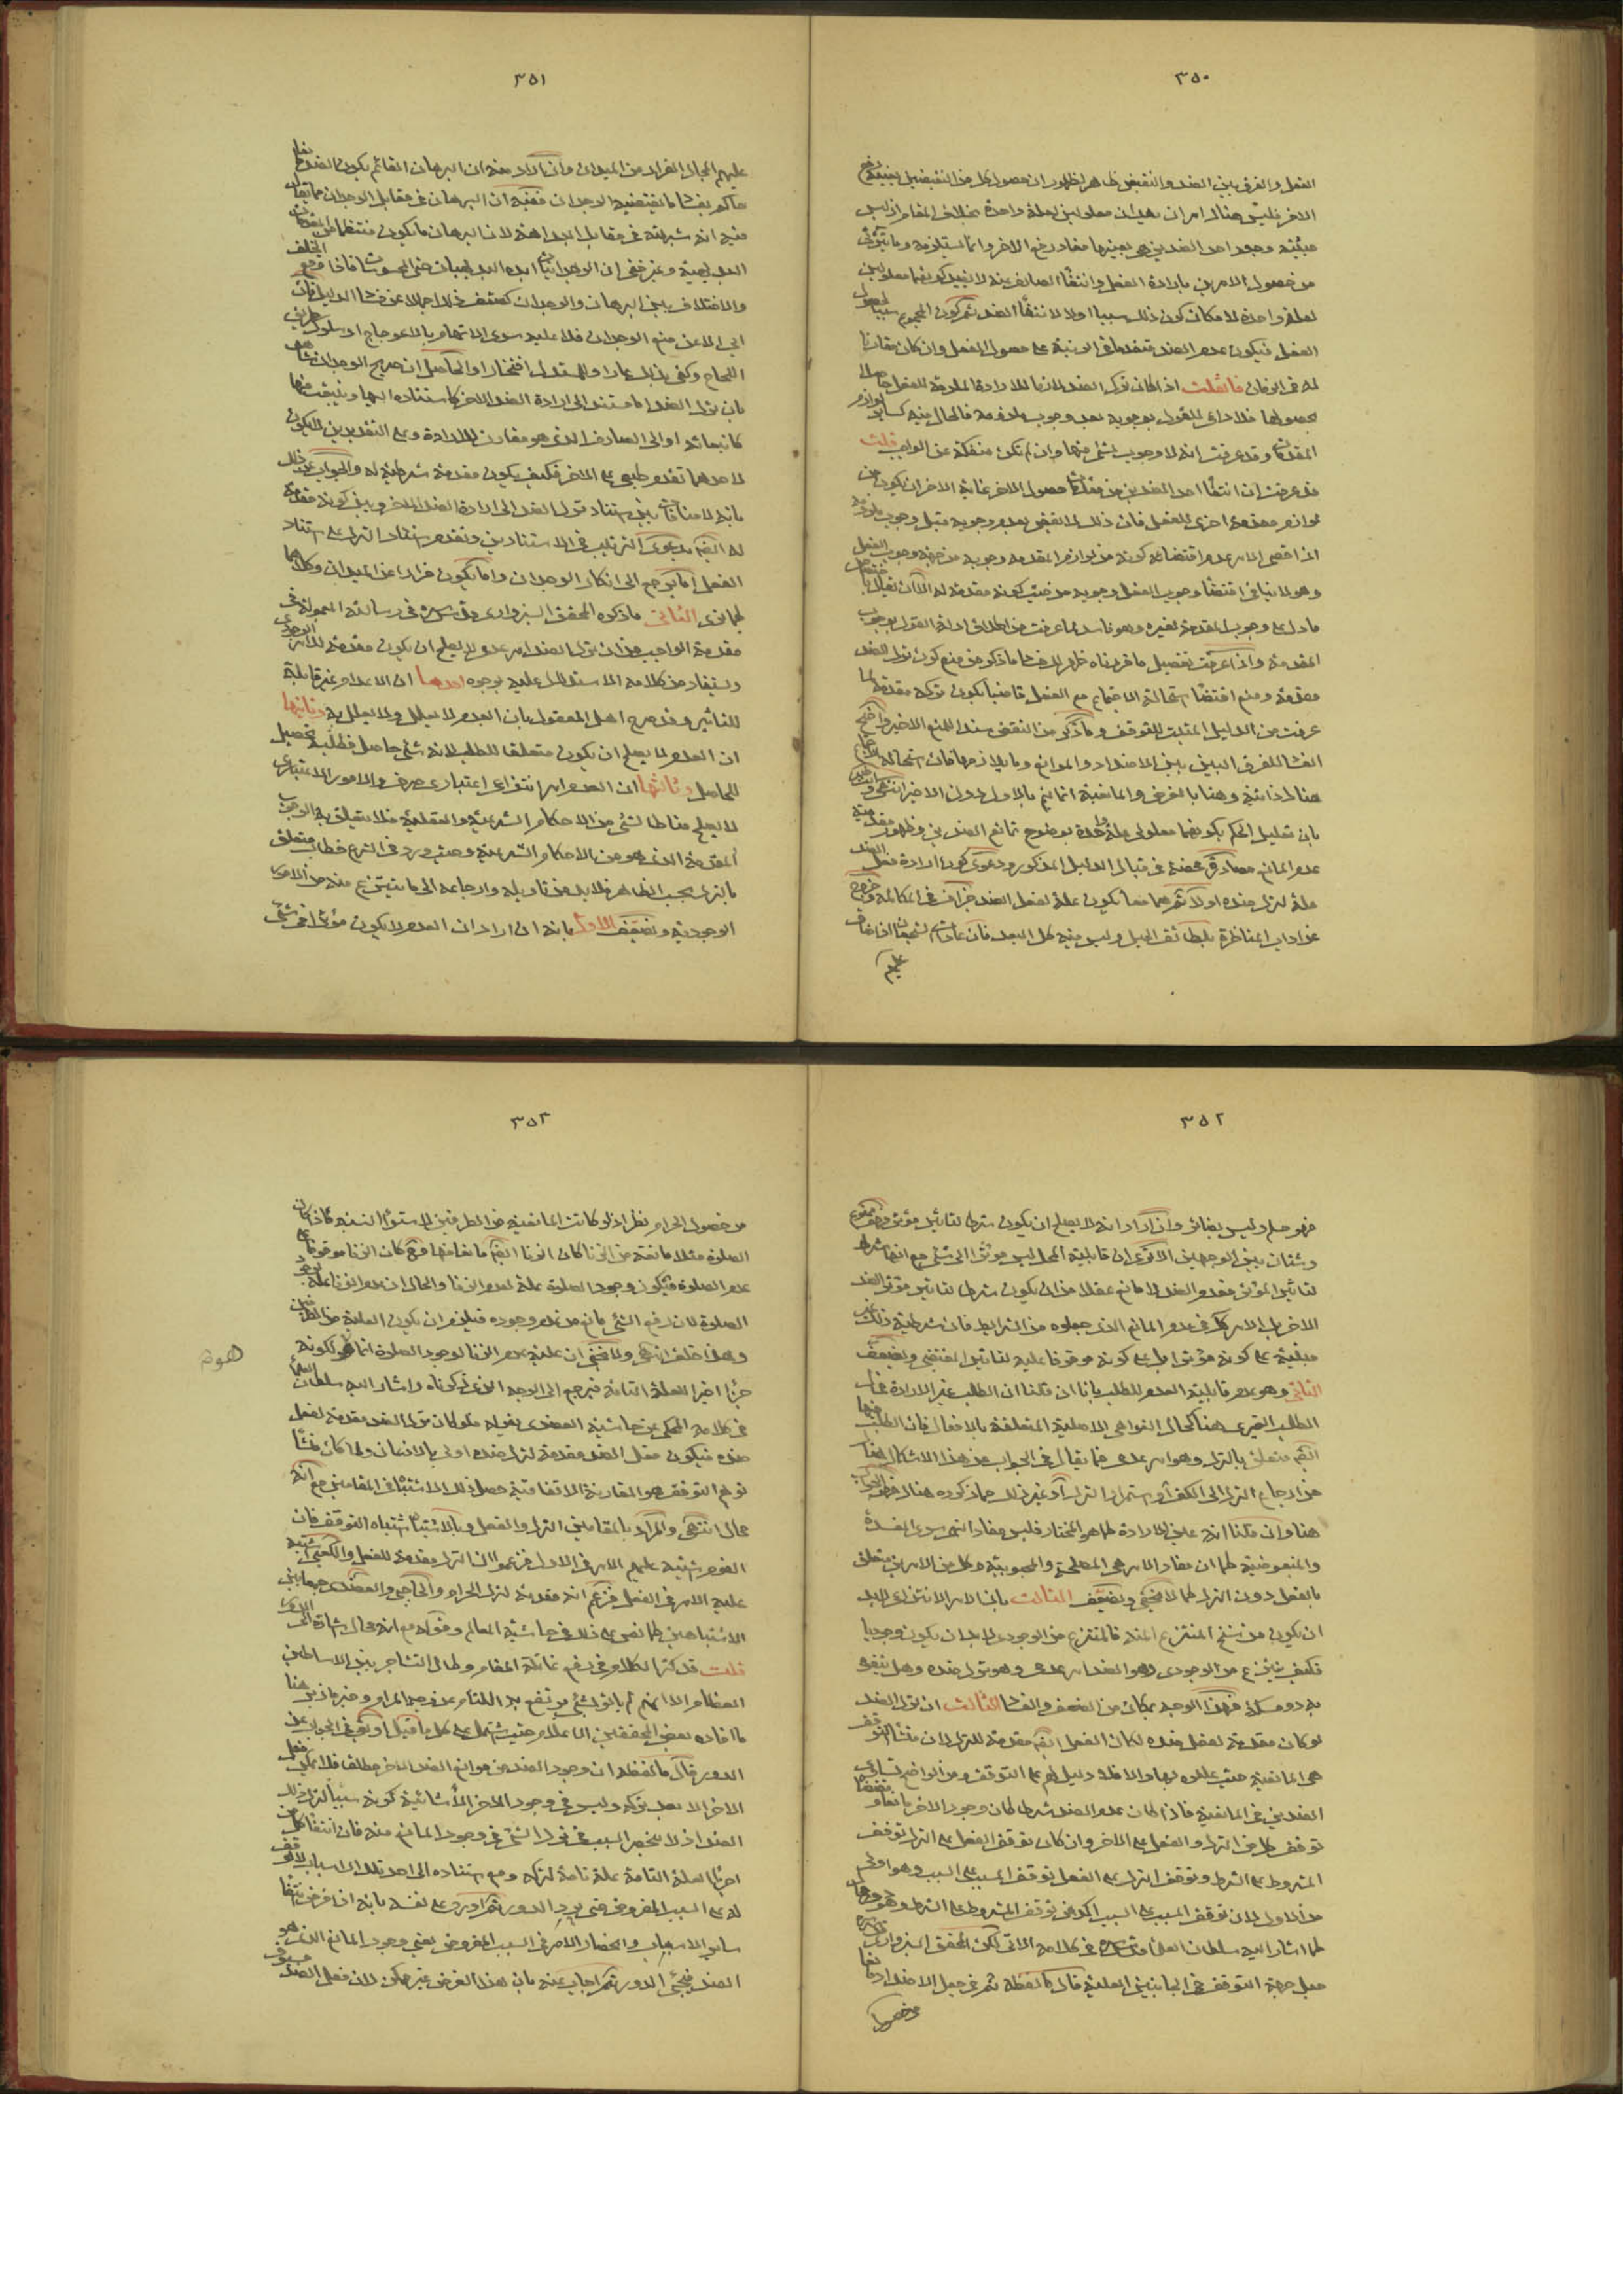 ٣٥٠
الفعل والفرق بين الضد والنقيض ظاهر لظهور ان حصول كل من النقيضين بعينه رفع
الاخر فليس هناك امران يعدان معلولين لعلة واحدة بخلاف المقام اذ ليس
حيثية وجود احد الضدين هي بعينها مفاد رفع الاخر وانما يستلزمه وما يترائى
من حصول الامرين بارادة الفعل وانتفاء الصارف عنه لا يفيد كونهما معلولين
لعلة واحدة لامكان كون ذلك سببا اولا لانتفاء الضد ثم كون المجموع سببا لحصول
الفعل فيكون عدم الضد متقدما في الرتبة على حصول الفعل وان كان مقارنا
له في الزمان فان قلت اذا كان ترك الضد لازما للارادة الملزمة للفعل حاصلا
بحصولها فلا داعى للقول بوجوبه بعد وجوب ملزومه فالحال فيه كسائر لوازم
المقدمات وقد عرفت انه لا وجوب لشئ منها وان لم تكن منفكة عن الواجب قلت
قد عرفت ان انتفاء احد الضدين من مقدمات حصول الاخر غاية الامر ان يكون من
لوازم مقدمة اخرى للفعل فان ذلك لا يقضى بعدم وجوبه قبل وجوب ملزومه
اذ اقصى الامر عدم اقتضاء كونه من لوازم المقدمة وجوبه من جهة وجوب الفعل
وهو لا ينافى اقتضاء وجوب الفعل وجوبه من حيث كونه مقدمة له الا ان يقال باختصاص
ما دل على وجوب المقدمة بغيره وهو فاسد لما عرفت من اطلاق ادلة القول بوجوب
المقدمة واذا عرفت تفصيل ما قررناه ظهر لك فساد ما ذكر من منع كون ترك الضد
مقدمة ومنع اقتضاء استحالة الاجتماع مع الفعل قاضيا بكون تركه مقدمة لما
عرفت من الدليل المثبت للتوقف وما ذكر من النقض سندا للمنع الاخير واضح
الفساد للفرق البين بين الاضداد والموانع وما يلازمها فان استحالة الاجتماع
هناك ذاتية وهنا بالعرض والمانعية انما يتم بالاول دون الاخير انتهى وانت خبير
بان تعليل الحكم بكونهما معلولى علة واحدة بوضوح تمانع الضدين وظهور مقدمية
عدم المانع مصادرة محضة في قبال الدليل المذكور ودعوى كون ارادة فعل الضد
علة لترك ضده اولا ثم هما معا يكون علة لفعل الضد جزاف في المكالمة وخروج
عن اداب المناظرة بلطائف الحيل وليس فيه كل البعد فان
عليهم
٣٥١
عليهم المجال الفرار عن الميدان وان اراد منه ان البرهان القائم بكون الضد
حاكم بفساد ما يقتضيه الوجدان ففيه ان البرهان في مقابل الوجدان مما يقال
فيه انه شبهة في مقابل البداهة لان البرهان ما يكون منتظما من المقدمات
البديهية وغير خفى ان الوجدانيات ابده البديهيات حتى المحسوسات فاذا وقع الخلف
والاختلاف بين البرهان والوجدان كشف ذلك اجمالا عن فساد الدليل فان
ابى الا عن منع الوجدان فلا عليه سوى الاتهام بالاعوجاج او سلوك طريق
اللجاج وكفى بذلك عارا والمستدل افتخارا والحاصل ان صريح الوجدان شاهد
بان ترك الضد اما مستند الى ارادة الضد الاخر كاستناده اليها وينبعث منها
كانبعاثه او الى الصارف الذى هو مقارن للارادة وعلى التقديرين لا يكون
لاحدهما تقدم طبعى على الاخر فكيف يكون مقدمة شرطية له والجواب عن ذلك
بانه لا منافاة بين استناد ترك الضد الى ارادة الضد الاخر وبين كونه مقدمة
له ايضا بدعوى الترتيب في الاستنادين وتقدم استناد الترك على استناد
الفعل اما يرجع الى انكار الوجدان واما يكون فرارا عن الميدان وكلاهما
كما ترى الثانى ما ذكره المحقق السبزوارى قدس سره في رسالته المعمولة في
مقدمة الواجب من ان ترك الضد امر عدمى لا يصلح ان يكون مقدمة للامر الوجودى
ويستفاد من كلامه الاستدلال عليه بوجوه احدها ان الاعدام غير قابلة
للتاثير وقد صرح اهل المعقول بان العدم لا يعلل ولا يعلل به وثانيها
ان العدم لا يصلح ان يكون متعلقا للطلب لانه شئ حاصل فطلبه تحصيل
للحاصل وثالثها ان العدم امر انتزاعى اعتبارى صرف والامور الاعتبارى
لا يصلح مناطا لشئ من الاحكام الشرعية والعقلية فلا يتعلق به الوجوب
المقدمة الذى هو من الاحكام الشرعية وحيث ورد في الشرع خطاب متعلق
بالترك بحسب الظاهر فلا بد من تاويله وارجاعه الى ما ينتزع منه من الامور
الوجودية ويضعف الاول بانه ان اراد ان العدم لا يكون مؤثرا في شئ
٣٥٢
فهو مسلم وليس بضائر وان اراد انه لا يصلح ان يكون شرطا لتاثير مؤثر فهو ممنوع
وشتان بين الوجهين الا ترى ان قابلية المحل ليس مؤثرا الى شئ مع انها شرط
لتاثير المؤثر فعدم الضد لا مانع عقلا من ان يكون شرطا لتاثير مؤثر الضد
الاخر بل الامر كك في عدم المانع الذى جعلوه من الشرايط فان شرطيته ذلك غير
مبنية على كونه مؤثرا بل على كونه موقوفا عليه لتاثير المقتضى ويضعف
الثانى وهو عدم قابلية العدم للطلب بانا ان قلنا ان الطلب غير الارادة فحال
الطلب الغيرى هنا كحال النواهى الاصلية المتعلقة بالافعال فان الطلب فيها
ايضا متعلق بالترك وهو امر عدمى فما يقال في الجواب عن هذا الاشكال هناك
من ارجاع الترك الى الكف او استمرار الترك او غير ذلك مما ذكروه هناك فهو الجواب
هنا وان قلنا انه عين الارادة كما هو المختار فليس مفاد النهى سوى المفسدة
والمبغوضية كما ان مفاد الامر هى المصلحة والمحبوبية وكل من الامرين متعلق
بالفعل دون الترك كما لا يخفى ويضعف الثالث بان الامر الانتزاعى لا بد
ان يكون من سنخ المنتزع المنه فالمنتزع من الوجودى لا بد ان يكون وجوديا
فكيف ينتزع من الوجودى وهو الضد امر عدمى وهو ترك ضده وهل يتفوه
به ذو مسكة فهذا الوجه بمكان من الضعف والفساد الثالث ان ترك الضد
لو كان مقدمة لفعل ضده لكان الفعل ايضا مقدمة للترك لان منشا التوقف
هى المانعية حيث عللوه بها والا فلا دليل لهم على التوقف ومن الواضح تساوى
الضدين في المانعية فاذا كان عدم الضد شرطا كان وجود الاخر مانعا ومقتضاه
توقف كل من الترك والفعل على الاخر وان كان توقف الفعل على الترك توقف
المشروط على الشرط وتوقف الترك على الفعل توقف المسبب على السبب وهو اولى
من الاول لان توقف المسبب على السبب اكد من توقف المشروط على الشرط وهو دور
كما اشار اليه سلطان العلماء قدس سره في كلامه الاتى لكن المحقق السبزوارى
جعل جهة التوقف في الجانبين العلية قال ما لفظه ثم في جعل الاضداد مانعا
من حصول
٣٥٣
من حصول الحرام نظر اذ لو كانت المانعية من الطرفين لاستواء النسبة فاذا كان
الصلوة مثلا مانعة من الزنا كان الزنا ايضا مانعا منها فح كان الزنا موقوفا على
عدم الصلوة فيكون وجود الصلوة علة لعدم الزنا والحال ان عدم الزنا علة لوجود
الصلوة لان رفع الشئ مانع من عدم وجوده فيلزم ان يكون العلية من الطرفين
وهذا خلف انتهى ولا يخفى ان علية عدم الزنا لوجود الصلوة انما هو لكونه
جزءا اخيرا للعلة التامة فيرجع الى الوجه الذى ذكرناه واشار اليه سلطان العلماء
في كلامه المحكى عن حاشية العضدى بقوله فلو كان ترك الضد مقدمة لفعل
ضده فيكون فعل الضد مقدمة لترك ضده اولى بالاذعان ولما كان منشا
توهم التوقف هو المقارنة الاتفاقية حصل ذلك الاشتباه في المقامين مع انه
محال انتهى والمراد بالمقامين الترك والفعل وبالاشتباه اشتباه التوقف فان
القوم اشتبه عليهم الامر في الاول فزعموا ان الترك مقدمة للفعل والكعبى اشتبه
عليه الامر في الفعل فزعم انه مقدمة لترك الحرام والحاجبى والعضدى جمعا بين
الاشتباهين كما نص على ذلك في حاشية المعالم وقوله مع انه محال اشارة الى الدور
قلت قد كثر الكلام في دفع غائلة المقام وطال التشاجر بين الاساطين
العظام الا انهم لم ياتوا بشئ يرتفع به اللثام عن وجه المرام وخير ما ذكر هنا
ما افاده بعض المحققين الاعلام حيث اشتمل على كل ما قيل او يقال في الجواب عن
الدور قال ما لفظه ان وجود الضد من موانع الضد الاخر مطلقا فلا يمكن فعل
الاخر الا بعد تركه وليس في وجود الاخر الا شانية كونه سببا لترك ذلك
الضد اذ لا ينحصر السبب في ترك الشئ في وجود المانع منه فان انتفاء كل من
اجزاء العلة التامة علة تامة لتركه ومع استناده الى احد تلك الاسباب لا توقف
له على السبب المفروض حتى يرد الدور ثم اورد على نفسه بانه اذا فرض انتفاء
ساير الاسباب وانحصار الامر في السبب المفروض يعنى وجود المانع الذى هو
الضد فيجئ الدور ثم اجاب عنه بان هذا الفرض غير ممكن لان فعل الضد مسبوق